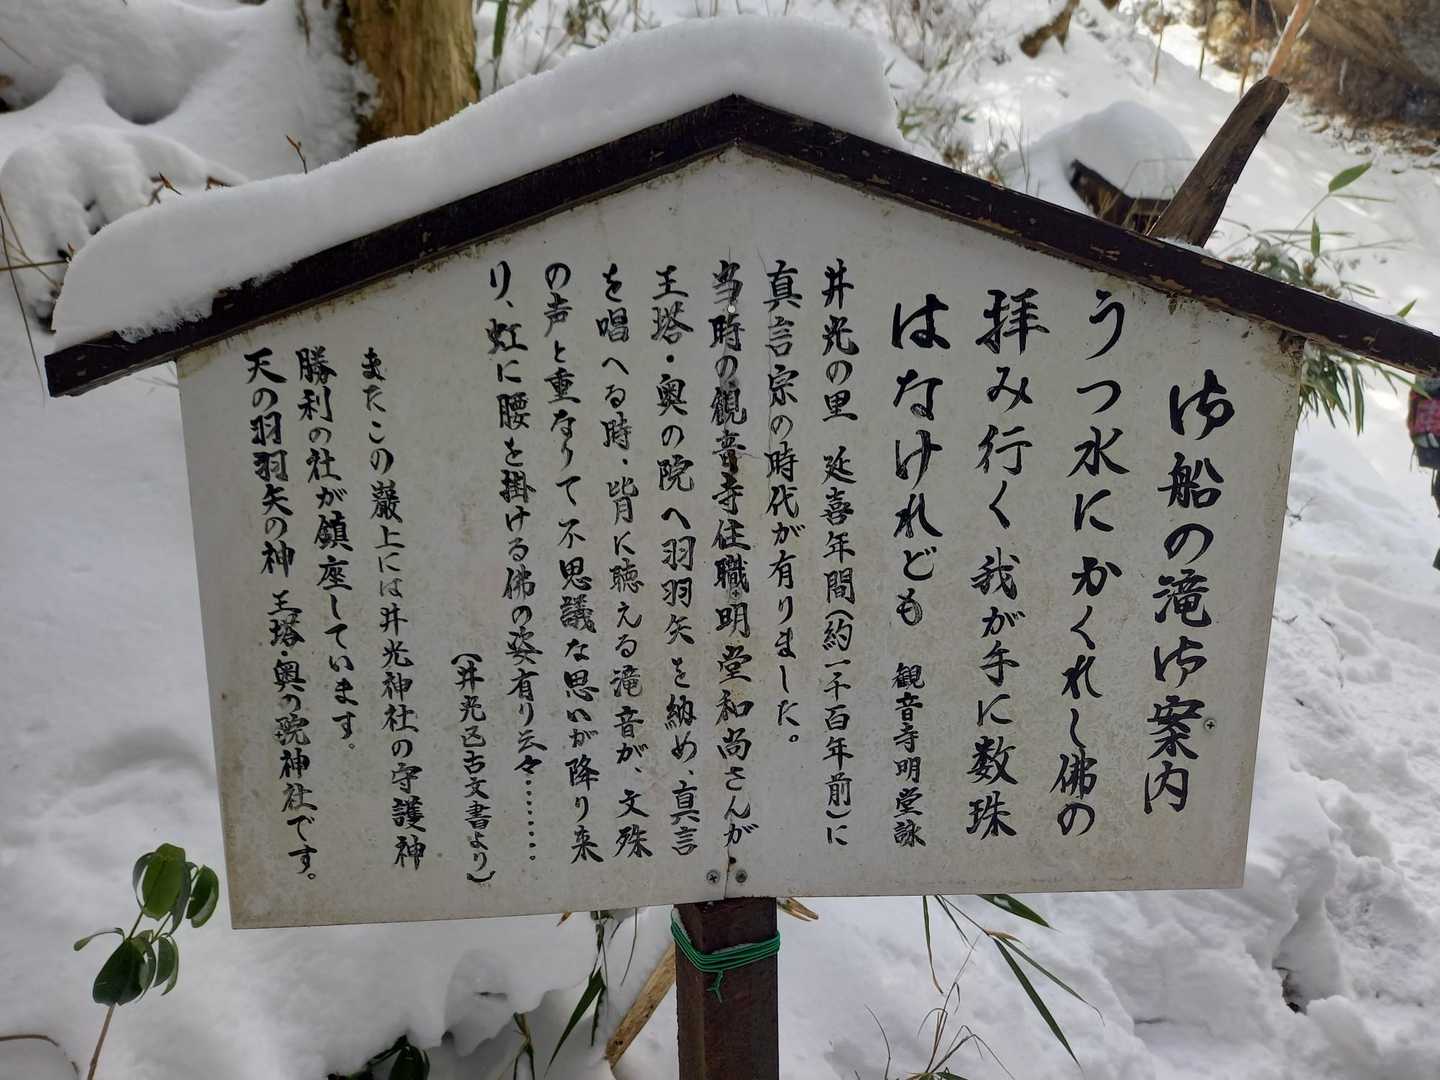 御船の滝御案内
うつ水にかくれし佛の
拝み行く我が手に数珠
はなけれども 観音寺明堂詠
井光の里 延喜年間(約一千百年前)に
真言宗の時代が有りました。
当時の観音寺住職明堂和尚さんが・
王塔・奥の院へ羽羽矢を納め、真言
を唱へる時・皆に聴える滝音が、文殊
の声と重なりて不思議な思いが降り来
り、虹に腰を掛ける佛の姿有り云々・・・・・・・。
(井光区古文書より)
またこの巌上には井光神社の守護神
勝利の社が鎮座しています。
天の羽羽矢の神 王塔・奥の院神社です。